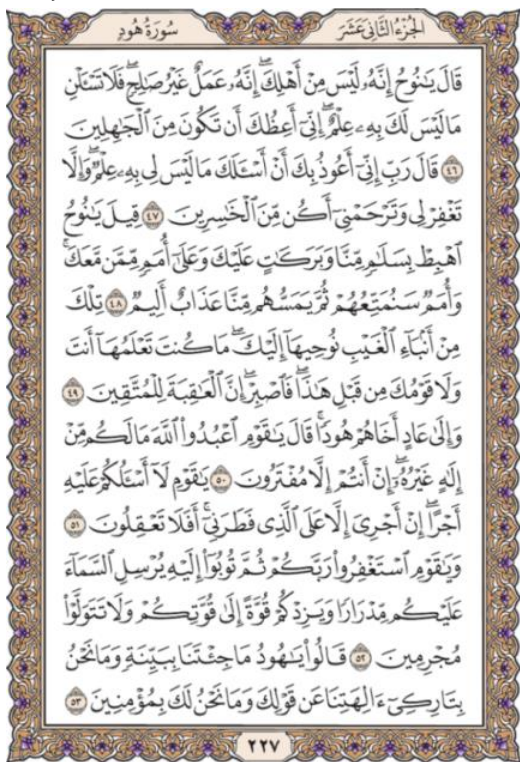 الجُزْءُ الثَّانِي عَشَرَ سُورَةُ هُودٍ
قَالَ يَٰنُوحُ إِنَّهُۥ لَيْسَ مِنْ أَهْلِكَۖ إِنَّهُۥ عَمَلٌ غَيْرُ صَٰلِحٖۖ فَلَا تَسْـَٔلْنِ
مَا لَيْسَ لَكَ بِهِۦ عِلْمٌۖ إِنِّيٓ أَعِظُكَ أَن تَكُونَ مِنَ ٱلْجَٰهِلِينَ
٤٦ قَالَ رَبِّ إِنِّيٓ أَعُوذُ بِكَ أَنْ أَسْـَٔلَكَ مَا لَيْسَ لِي بِهِۦ عِلْمٌۖ وَإِلَّا
تَغْفِرْ لِي وَتَرْحَمْنِيٓ أَكُن مِّنَ ٱلْخَٰسِرِينَ ٤٧ قِيلَ يَٰنُوحُ
ٱهْبِطْ بِسَلَٰمٍ مِّنَّا وَبَرَكَٰتٍ عَلَيْكَ وَعَلَىٰٓ أُمَمٍ مِّمَّن مَّعَكَۚ
وَأُمَمٌ سَنُمَتِّعُهُمْ ثُمَّ يَمَسُّهُم مِّنَّا عَذَابٌ أَلِيمٌ ٤٨ تِلْكَ
مِنْ أَنۢبَآءِ ٱلْغَيْبِ نُوحِيهَآ إِلَيْكَۖ مَا كُنتَ تَعْلَمُهَآ أَنتَ
وَلَا قَوْمُكَ مِن قَبْلِ هَٰذَاۖ فَٱصْبِرْۖ إِنَّ ٱلْعَٰقِبَةَ لِلْمُتَّقِينَ ٤٩
وَإِلَىٰ عَادٍ أَخَاهُمْ هُودًاۚ قَالَ يَٰقَوْمِ ٱعْبُدُوا۟ ٱللَّهَ مَا لَكُم مِّنْ
إِلَٰهٍ غَيْرُهُۥٓۖ إِنْ أَنتُمْ إِلَّا مُفْتَرُونَ ٥٠ يَٰقَوْمِ لَآ أَسْـَٔلُكُمْ عَلَيْهِ
أَجْرًاۖ إِنْ أَجْرِيَ إِلَّا عَلَى ٱلَّذِي فَطَرَنِيٓۚ أَفَلَا تَعْقِلُونَ ٥١
وَيَٰقَوْمِ ٱسْتَغْفِرُوا۟ رَبَّكُمْ ثُمَّ تُوبُوٓا۟ إِلَيْهِ يُرْسِلِ ٱلسَّمَآءَ
عَلَيْكُم مِّدْرَارًا وَيَزِدْكُمْ قُوَّةً إِلَىٰ قُوَّتِكُمْ وَلَا تَتَوَلَّوْا۟
مُجْرِمِينَ ٥٢ قَالُوا۟ يَٰهُودُ مَا جِئْتَنَا بِبَيِّنَةٍ وَمَا نَحْنُ
بِتَارِكِيٓ ءَالِهَتِنَا عَن قَوْلِكَ وَمَا نَحْنُ لَكَ بِمُؤْمِنِينَ ٥٣
٢٢٧